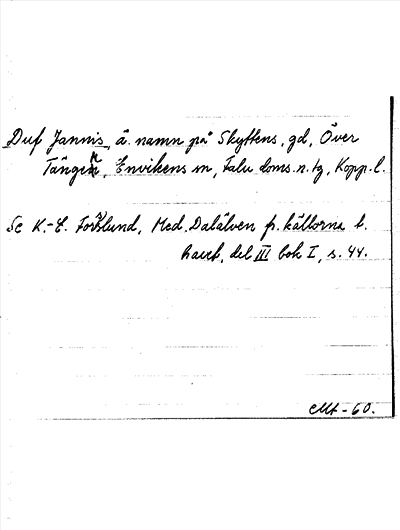 Duf Jannis, ä. namn på Skyttens, gd, Över
Tängen, Envikens sn, Falu doms. n. tg, Kopp. l.
Se K.-E. Forsslund, Med Dalälven fr. källorna t.
havet, del III bok I, s. 44.
-60.